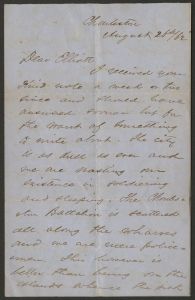 Charleston
August 26th/62
Dear Elliott
I received your
kind note a week or two
since and should have
answered sooner but for
the want of something
to write about. The city
is as dull as ever and
we are wasting our
existence in soldiering
and sleeping. The
Battalion is scattered
all along the wharves
and we are mere police-
men. This however is
better than being on the
islands where the